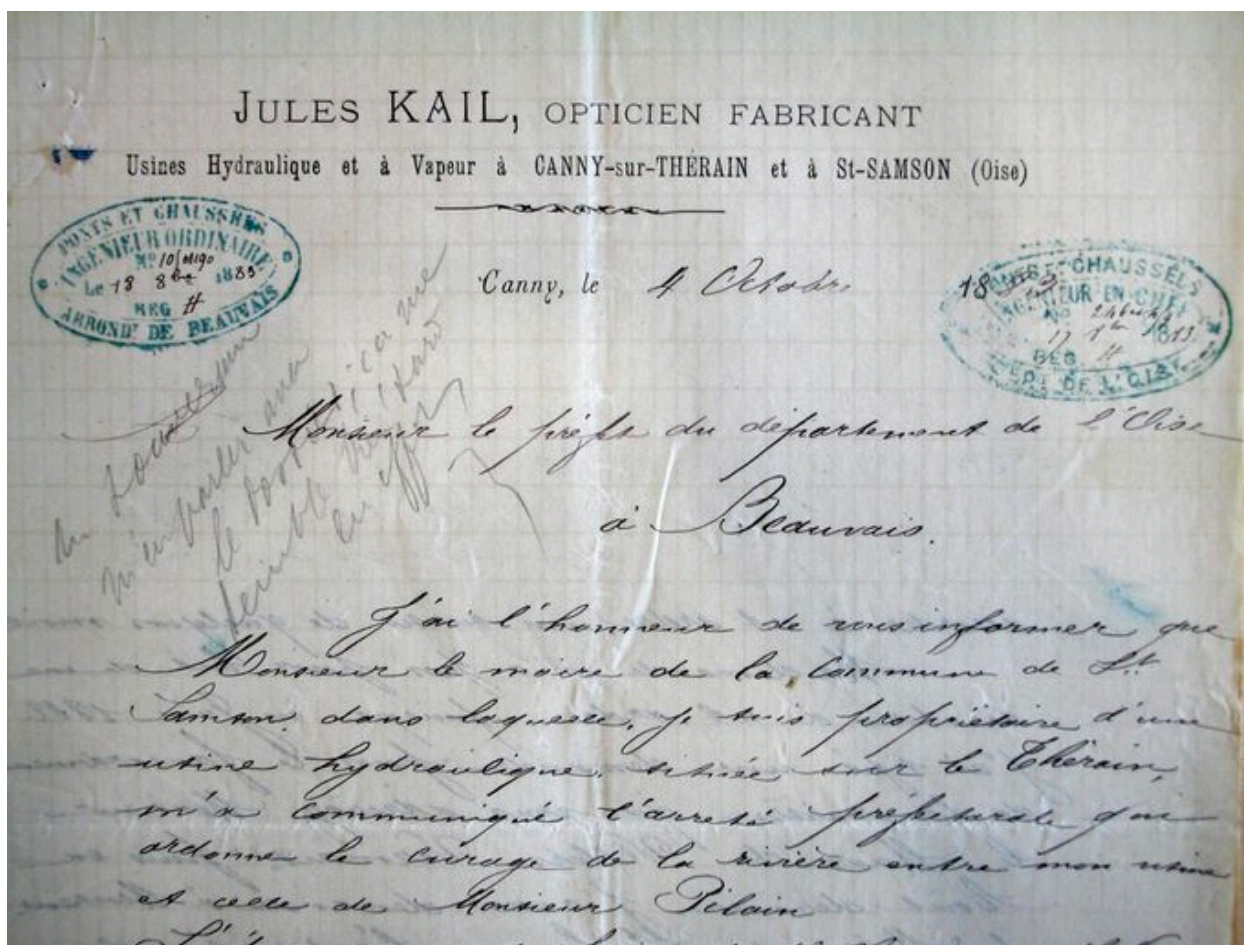 JULES KAIL, OPTICIEN FABRICANT
Usines Hydraulique et à Vapeur à CANNY-sur-THÉRAIN et à St-SAMSON (Oise)
PONTS ET CHAUSSÉES
INGÉNIEUR ORDINAIRE
No
Le 18 8bre 1883
REG H
ARRONDT DE BEAUVAIS
Canny, le 4 Octobre
18
PONTS ET CHAUSSÉES
INGÉNIEUR EN CHEF
No
17
REG H
DEPT DE L'OISE
m'en parler avec
le
semble
en effet
Monsieur le préfet du département de l'Oise
à Beauvais.
J'ai l'honneur de vous informer que
Monsieur le maire de la commune de St
Samson, dans laquelle, je suis propriétaire d'une
usine hydraulique, située sur le Thérain,
m'a communiqué l'arreté préfectorale qui
ordonne le curage de la rivière entre mon usine
et celle de Monsieur Pilain